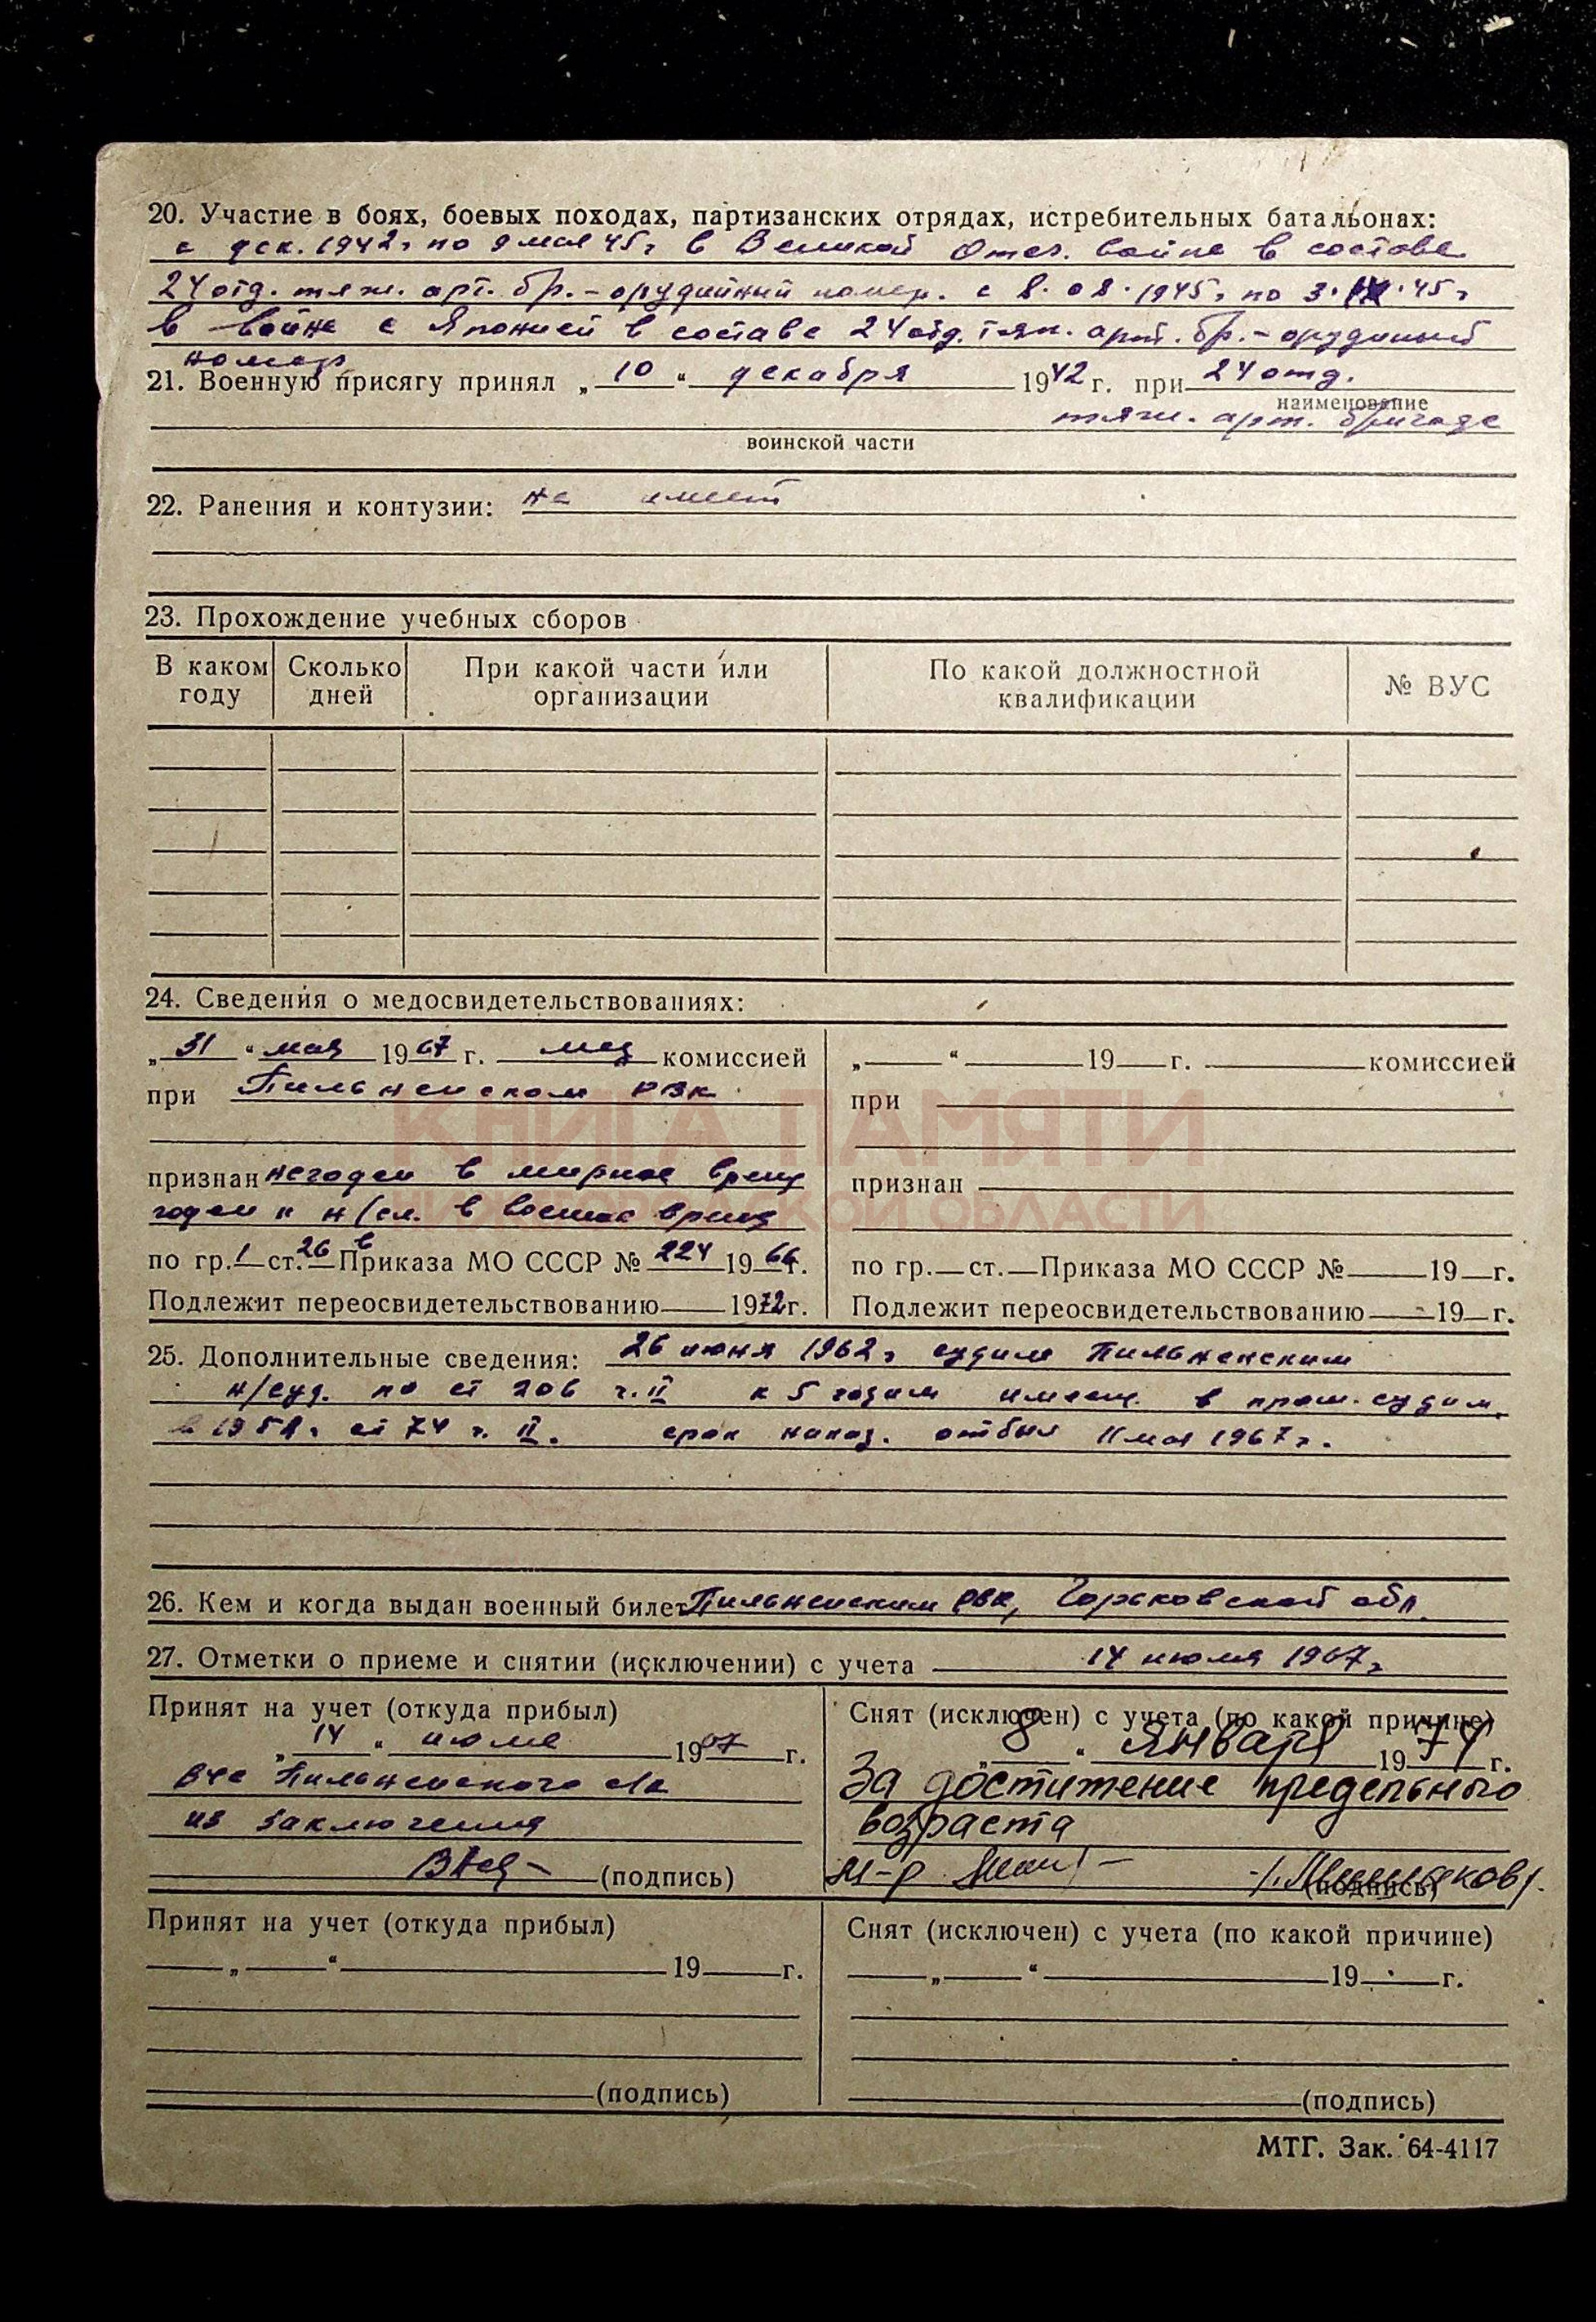 20. Участие в боях, боевых походах, партизанских отрядах, истребительных батальонах:
с дек. 1942г по 9 мая 45г в Великой Отеч. войне в составе
24 отд. тяж. арт. бр. - орудийный номер. с 8.08.1945г по 3.IX.45г
в войне с Японией в составе 24 отд. тяж. арт. бр. - орудийный
номер
21. Военную присягу принял „ 10 “ декабря 1942 г. при 24 отд.
наименование
тяж. арт. бригаде
воинской части
22. Ранения и контузии: не имеет
23. Прохождение учебных сборов
В каком году
Сколько дней
При какой части или организации
По какой должностной квалификации
№ ВУС
24. Сведения о медосвидетельствованиях:
„ 31 “ мая 1967 г. мед комиссией
при Пильненском РВК
признан негоден в мирное время
годен к н/сл. в военное время
по гр. 1 ст. 26 в Приказа МО СССР № 224 1966 г.
Подлежит переосвидетельствованию 1972 г.
„ “ 19 г. комиссией
при
признан
по гр. ст. Приказа МО СССР № 19 г.
Подлежит переосвидетельствованию 19 г.
25. Дополнительные сведения: 26 июня 1962г судим Пильненским
н/суд. по ст 206 ч. II к 5 годам имеющ. в прош. судим.
ст 74 ч. II. срок наказ. отбыл 11 мая 1967г.
26. Кем и когда выдан военный билет Пильненским РВК, Горьковской обл.
27. Отметки о приеме и снятии (исключении) с учета 14 июля 1967г
Принят на учет (откуда прибыл)
„ 14 “ июля 1967 г.
Пильненского
из заключения
(подпись)
Снят (исключен) с учета (по какой причине)
„ 8 “ января 1974 г.
За достижение предельного
возраста
м-р
(подпись)
Принят на учет (откуда прибыл)
„ “ 19 г.
(подпись)
Снят (исключен) с учета (по какой причине)
„ “ 19 г.
(подпись)
МТГ. Зак. 64-4117
КНИГА ПАМЯТИ
НИЖЕГОРОДСКОЙ ОБЛАСТИ